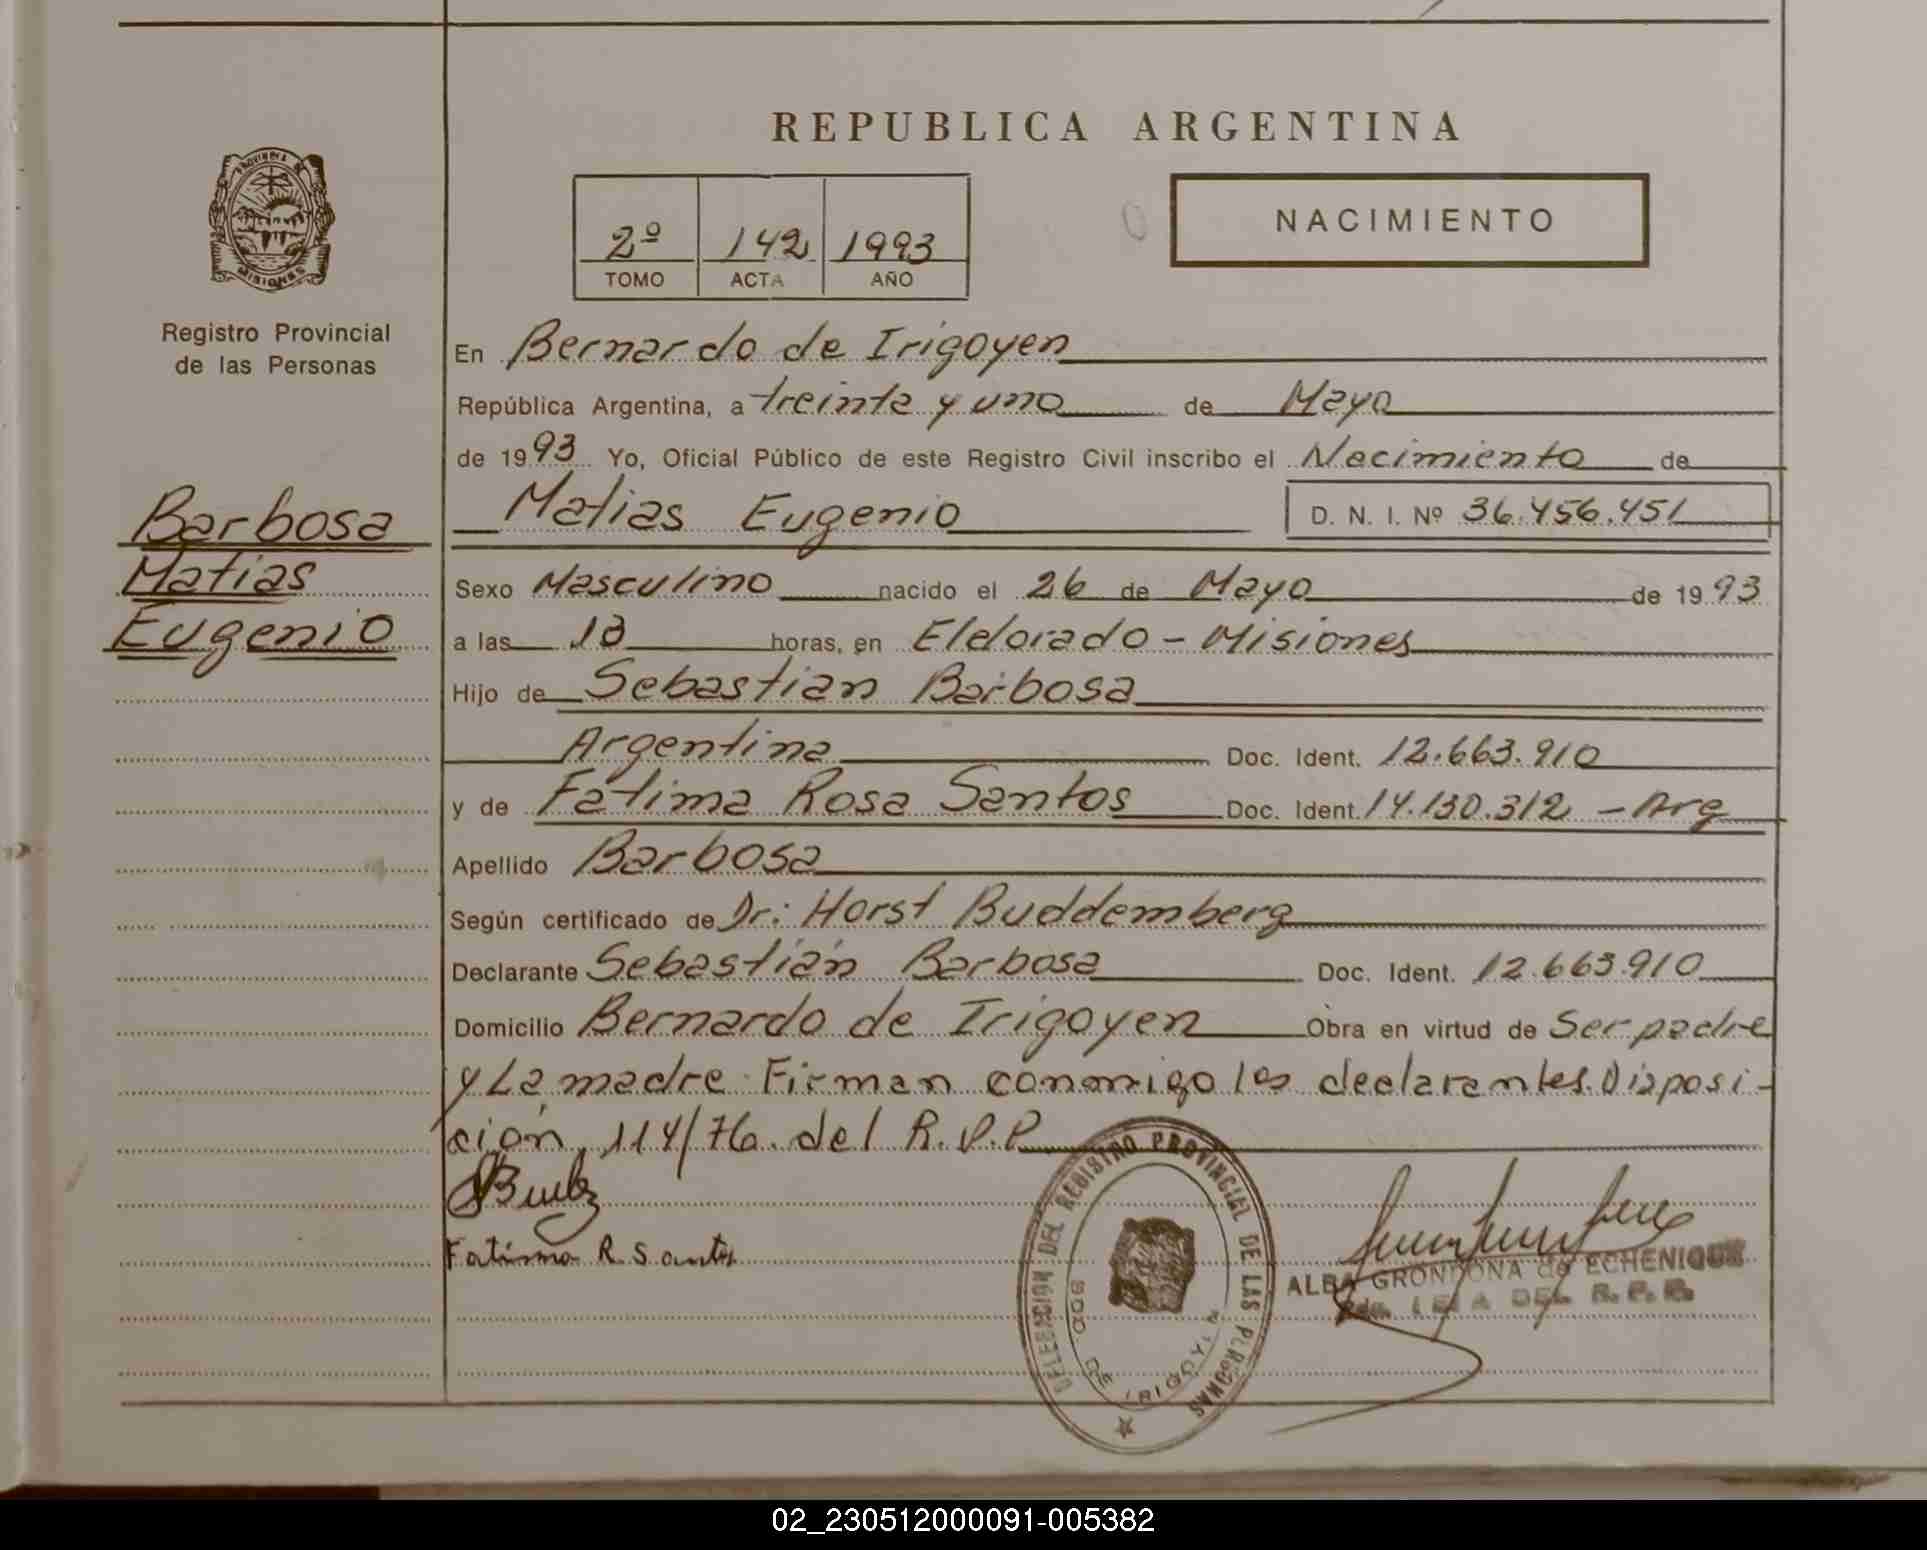 REPUBLICA ARGENTINA
PROVINCIA DE
MISIONES
Registro Provincial
de las Personas
2º 142 1993
TOMO ACTA AÑO
NACIMIENTO
En Bernardo de Irigoyen
República Argentina, a treinta y uno de Mayo
de 1993 Yo, Oficial Público de este Registro Civil inscribo el Nacimiento de
Matias Eugenio D. N. I. Nº 36.456.451
Barbosa
Matias
Eugenio
Sexo Masculino nacido el 26 de Mayo de 1993
a las horas, en Eldorado - Misiones
Hijo de Sebastian Barbosa
Argentina Doc. Ident. 12.663.910
y de Fatima Rosa Santos Doc. Ident. 14.130.312 - Arg
Apellido Barbosa
Según certificado de Dr: Horst Buddemberg
Declarante Sebastián Barbosa Doc. Ident. 12.663.910
Domicilio Bernardo de Irigoyen Obra en virtud de Ser padre
y La madre. Firman conmigo los declarantes. Disposi-
ción 114/76. del R.P.P
Fatima R Santos
DELEGACION DEL REGISTRO PROVINCIAL DE LAS PERSONAS
BDO. DE IRIGOYEN
ALBA GRONDONA de ECHENIQUE
DEL R.P.P.
02_230512000091-005382